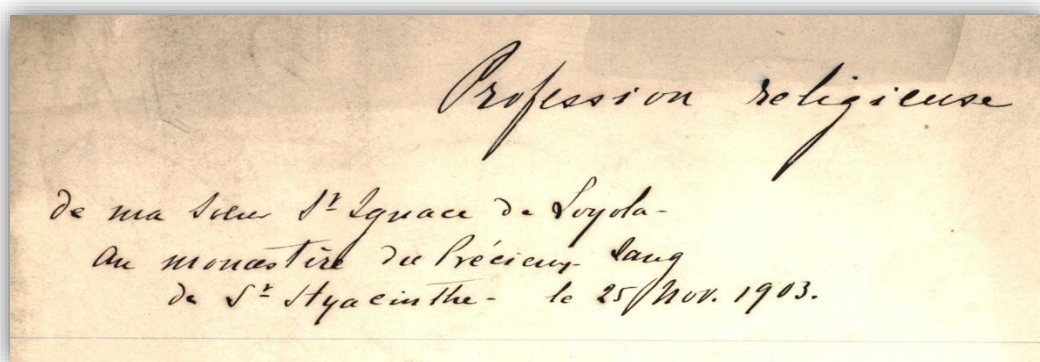 Profession religieuse
de ma Sœur St Ignace de Loyola-
Au monastère du Précieux Sang
de St Hyacinthe - le 25 Nov. 1903.